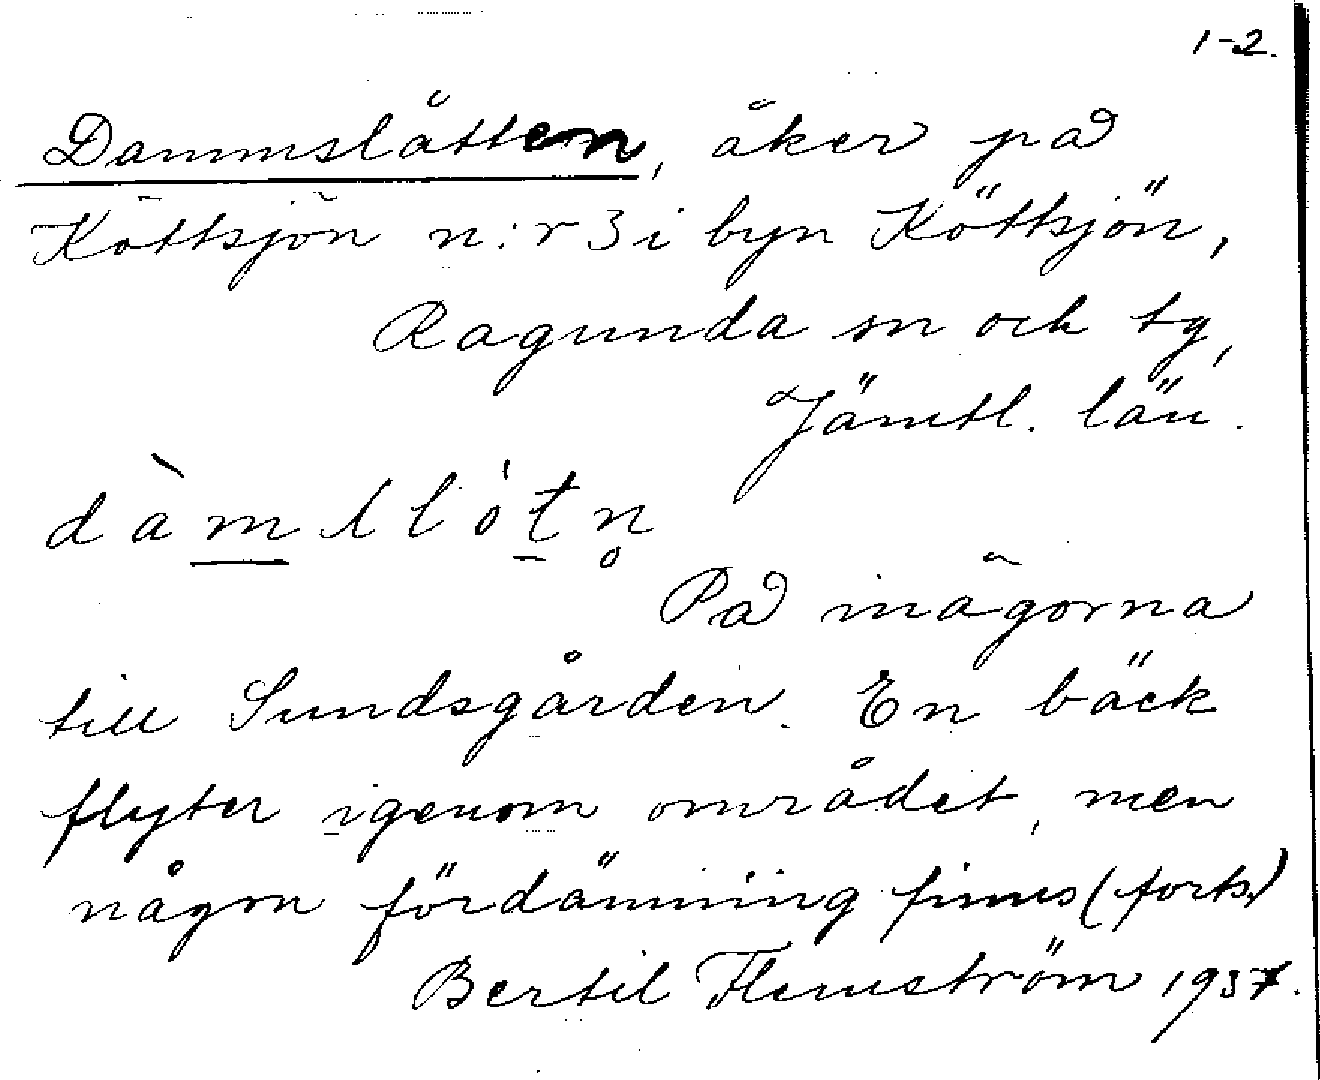 1-2.
Dammslåtten, åker på
Köttsjön n:r 3 i byn Köttsjön,
Ragunda sn och tg,
Jämtl. län.
På inägorna
till Sundsgården. En bäck
flyter igenom området, men
någon fördämning finns (forts)
Bertil Flemström 1937.